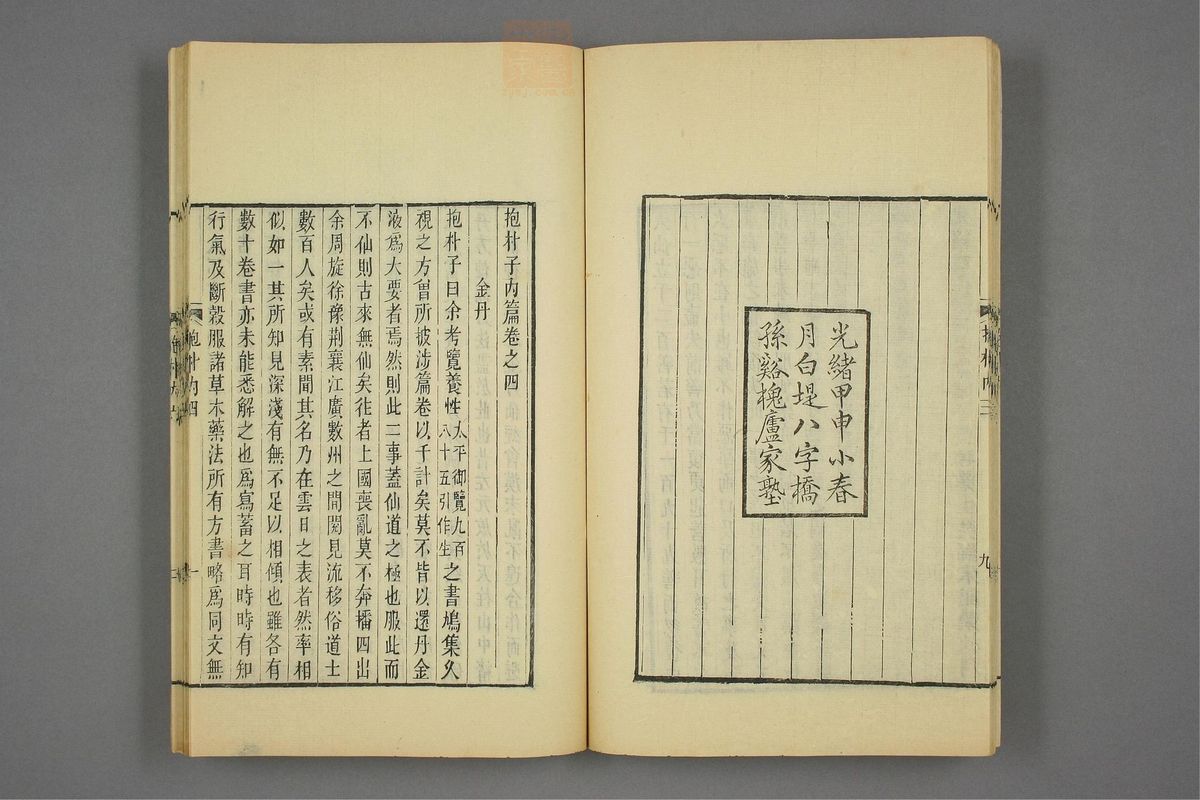 光緒甲申小春
月白堤八字橋
孫谿槐廬家塾
九
抱朴子內篇卷之四
金丹
抱朴子曰余考覽養性太平御覽九百八十五引作生之書鳩集久
視之方曾所披涉篇卷以千計矣莫不皆以還丹金
液爲大要者焉然則此二事蓋仙道之極也服此而
不仙則古來無仙矣往者上國喪亂莫不奔播四出
余周旋徐豫荆襄江廣數州之間閱見流移俗道士
數百人矣或有素聞其名乃在雲日之表者然率相
似如一其所知見深淺有無不足以相傾也雖各有
數十卷書亦未能悉解之也爲寫蓄之耳時時有知
行氣及斷穀服諸草木藥法所有方書略爲同文無
抱朴內四
一